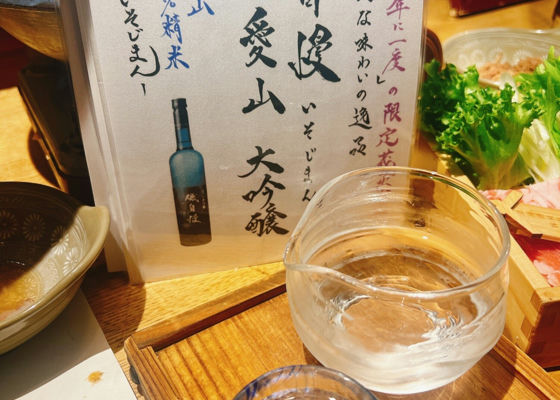 年に一度」の限定
な味わいの逸品
慢 いそじまん
愛山 大吟醸
山
精米
いそじまん
磯自慢